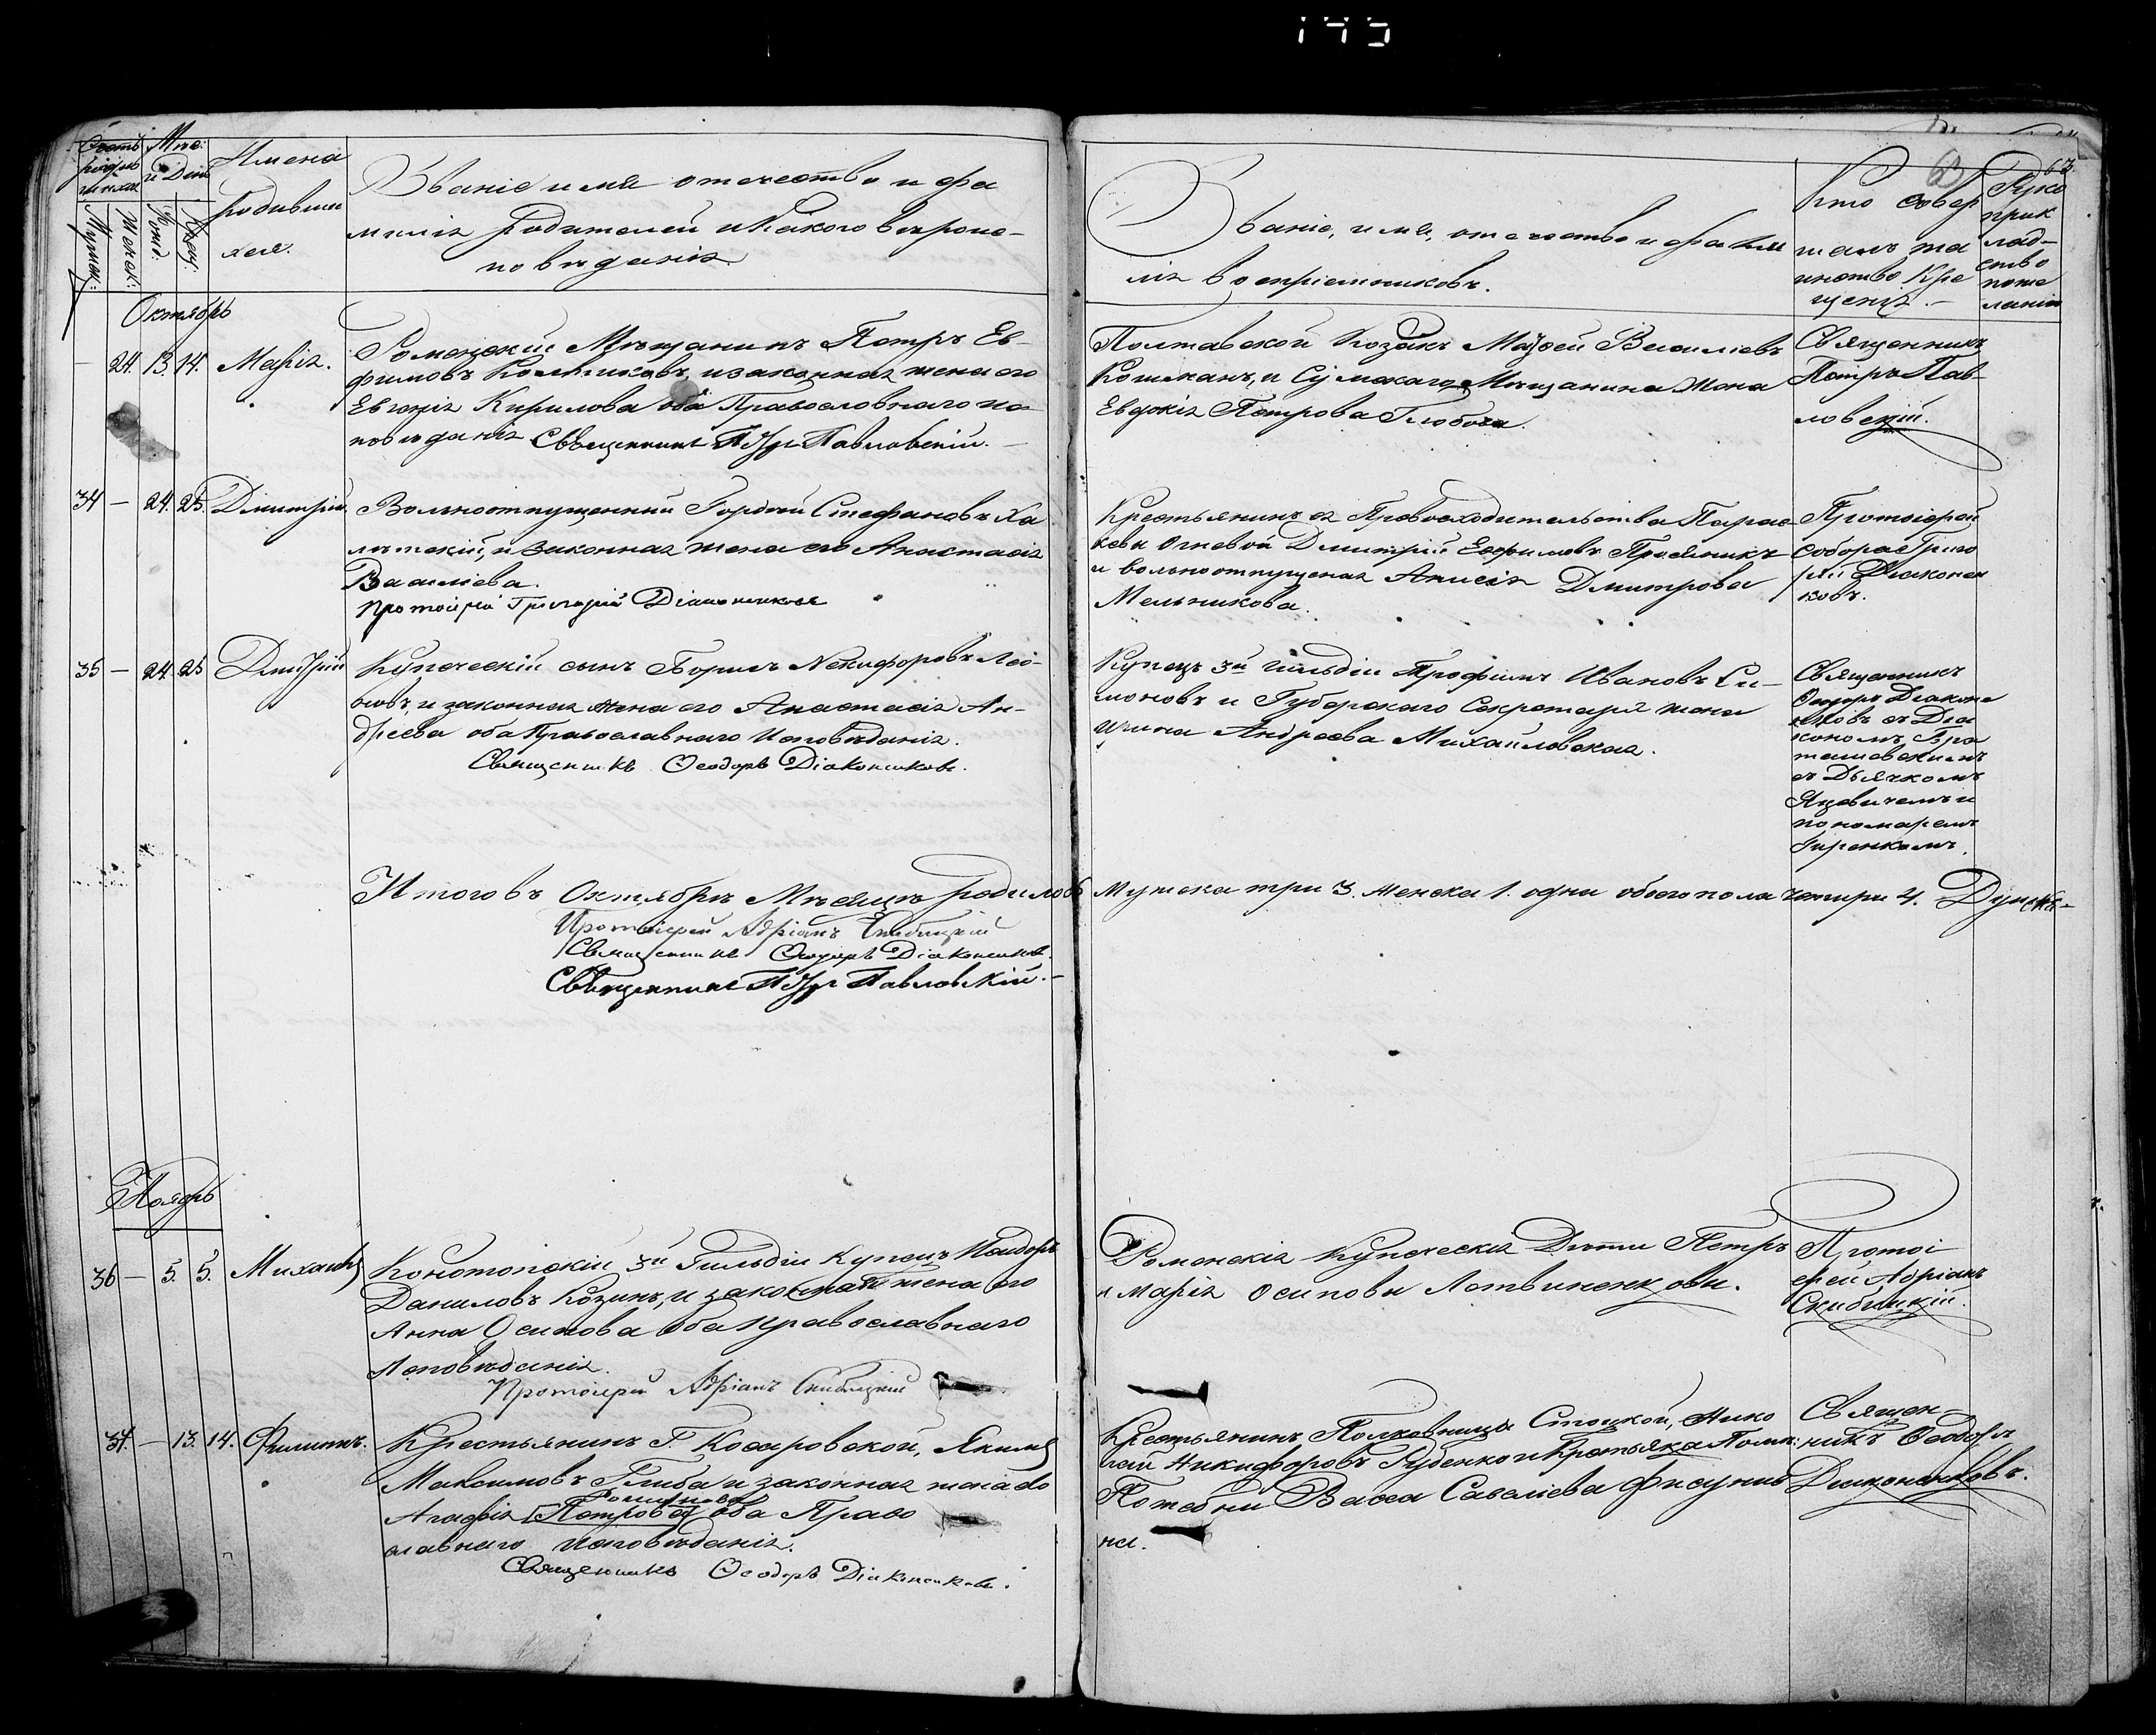 175
63
63.
Счетъ родив шихся
Муж ск:
Женск:
Мѣс: и День
Рожд:
Крещ:
Имена
родивши
хся.
Званіе имя отечество и фа
милія родителей и Какого вѣроис-
повѣданія.
Званіе, имя, отечество и фами
лія воспріемниковъ.
Кто совер
шалъ та
инство Кре
щенія.
Руко
прик
лад-
ство
поже
ланію
Октябрь
— 24. 13. 14. Марія.
Роменскій Мѣщанинъ Петръ Ев-
фимовъ и законная жена его
Евгенія Кирилова оба Православнаго ис-
повѣданія Священникъ Петръ Павловскій.
Полтавской Козакъ Матфей Василіевъ
и Сумскаго Мѣщанина Жена
Евдокія Петрова
Священникъ
Петръ Пав-
ловскій.
34 — 24. 25. Димитрій.
Вольноотпущенный Гордѣй Стефановъ Ха
лѣтскій, и Законная жена его Анастасія
Василіева.
Протоіерей Григорій Діаконенковъ
Крестьянинъ ея Превосходительства Парас
кевы Огневой Димитрій Евфимовъ Просяникъ
и вольноотпущеная Анисія Дмитрова
Мельникова.
Протоіерей
Собора Григо
рій Діаконен
ковъ.
35 — 24. 25 Дмитрій
Купеческій сынъ Борисъ Никифоровъ Лео-
новъ, и законная жена его Анастасія Ан-
дреева оба Православнаго Исповѣданія.
Священникъ Ѳеодоръ Діаконенковъ.
Купецъ 3й Гильдіи Трофимъ Ивановъ Си-
моновъ и Губерскаго Секретаря жена
Ирина Андреева Михайловская.
Священникъ
Ѳеодоръ Діаконе
нковъ съ Діа
кономъ
съ Дьячкомъ
Яцевичемъ и
пономаремъ
Гиренкомъ.
Итого въ Октябрѣ Мѣсяцѣ родилось Мужеска три 3. Женска 1. одна обоего пола четыри 4. Душъ.
Протоіерей Адріанъ Скибицкій
Священникъ Ѳеодоръ Діаконенковъ.
Священникъ Петръ Павловскій.
Ноябрь
36 — 5. 5. Михаилъ
Конотопскій 3й Гильдіи Купецъ Исидоръ
Даниловъ Козинъ, и законная жена его
Анна Осипова оба православнаго
Исповѣданія.
Протоіерей Адріанъ Скибицкій
Роменскія Купеческія Дѣти Петръ
и Марія Осиповы Летвиненковы.
Протоі
ерей Адріанъ
Скибицкій.
37. — 13. 14. Филиппъ.
Крестьянинъ Г. Косаровской, Якимъ
Максимовъ Глиба и законная жена его
Агафія Петрова оба Право
славнаго Исповѣданія.
Священникъ Ѳеодоръ Діаконенковъ.
Крестьянинъ Полковницы Стоцкой, Нико
лай Никифоровъ Руденко и Крестьянка Помѣ:
Потебни Васса Савеліева Фисунив
на.
Священ-
никъ Ѳеодоръ
Діаконенковъ.